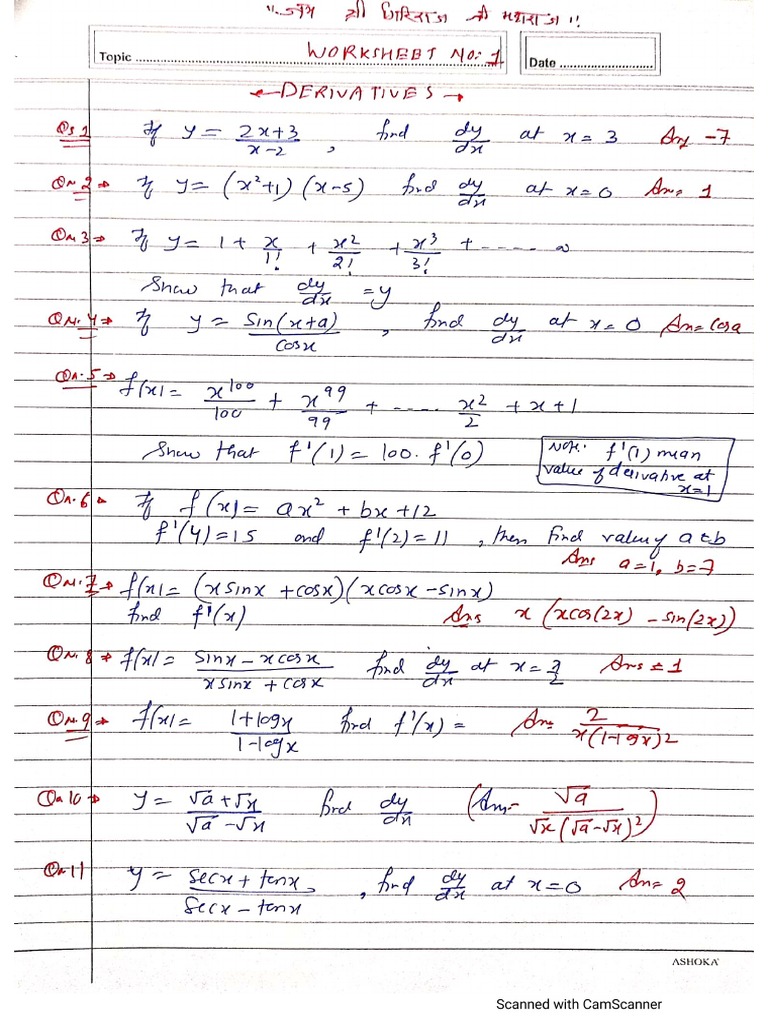 "जय श्री गिरिराज जी महाराज"
Topic ........ WORKSHEET No: 1
Date ........
← DERIVATIVES →
Qs 1 If y = (2x+3)/(x-2), find dy/dx at x = 3 Ans -7
Qn. 2 → If y = (x²+1)(x-5) find dy/dx at x=0 Ans= 1
Qn 3 → If y = 1 + x/1! + x²/2! + x³/3! + ----- ∞
Show that dy/dx = y
Qn. 4 → If y = Sin(x+a)/Cosx, find dy/dx at x = 0 Ans= Cosa
Qn. 5 → f(x) = x¹⁰⁰/100 + x⁹⁹/99 + ---- x²/2 + x + 1
Show that f'(1) = 100. f'(0)
Note: f'(1) mean
value of derivative at
x=1
Qn. 6 → If f(x) = ax² + bx + 12
f'(4) = 15 and f'(2) = 11, then find value of a & b
Ans a=1, b=7
Qn. 7 → f(x) = (x sinx + cosx)(x cosx - sinx)
find f'(x) Ans x (x cos(2x) - sin(2x))
Qn. 8 → f(x) = (sinx - x cosx)/(x sinx + cosx) find dy/dx at x = π/2 Ans = 1
Qn. 9 → f(x) = (1+logx)/(1-logx) find f'(x) = Ans= 2/(x(1-logx)²)
Qn 10 → y = (√a + √x)/(√a - √x) find dy/dx (Ans- √a/(√x(√a-√x)²))
Qn 11 y = (Secx + tanx)/(Secx - tanx), find dy/dx at x = 0 Ans= 2
ASHOKA
Scanned with CamScanner